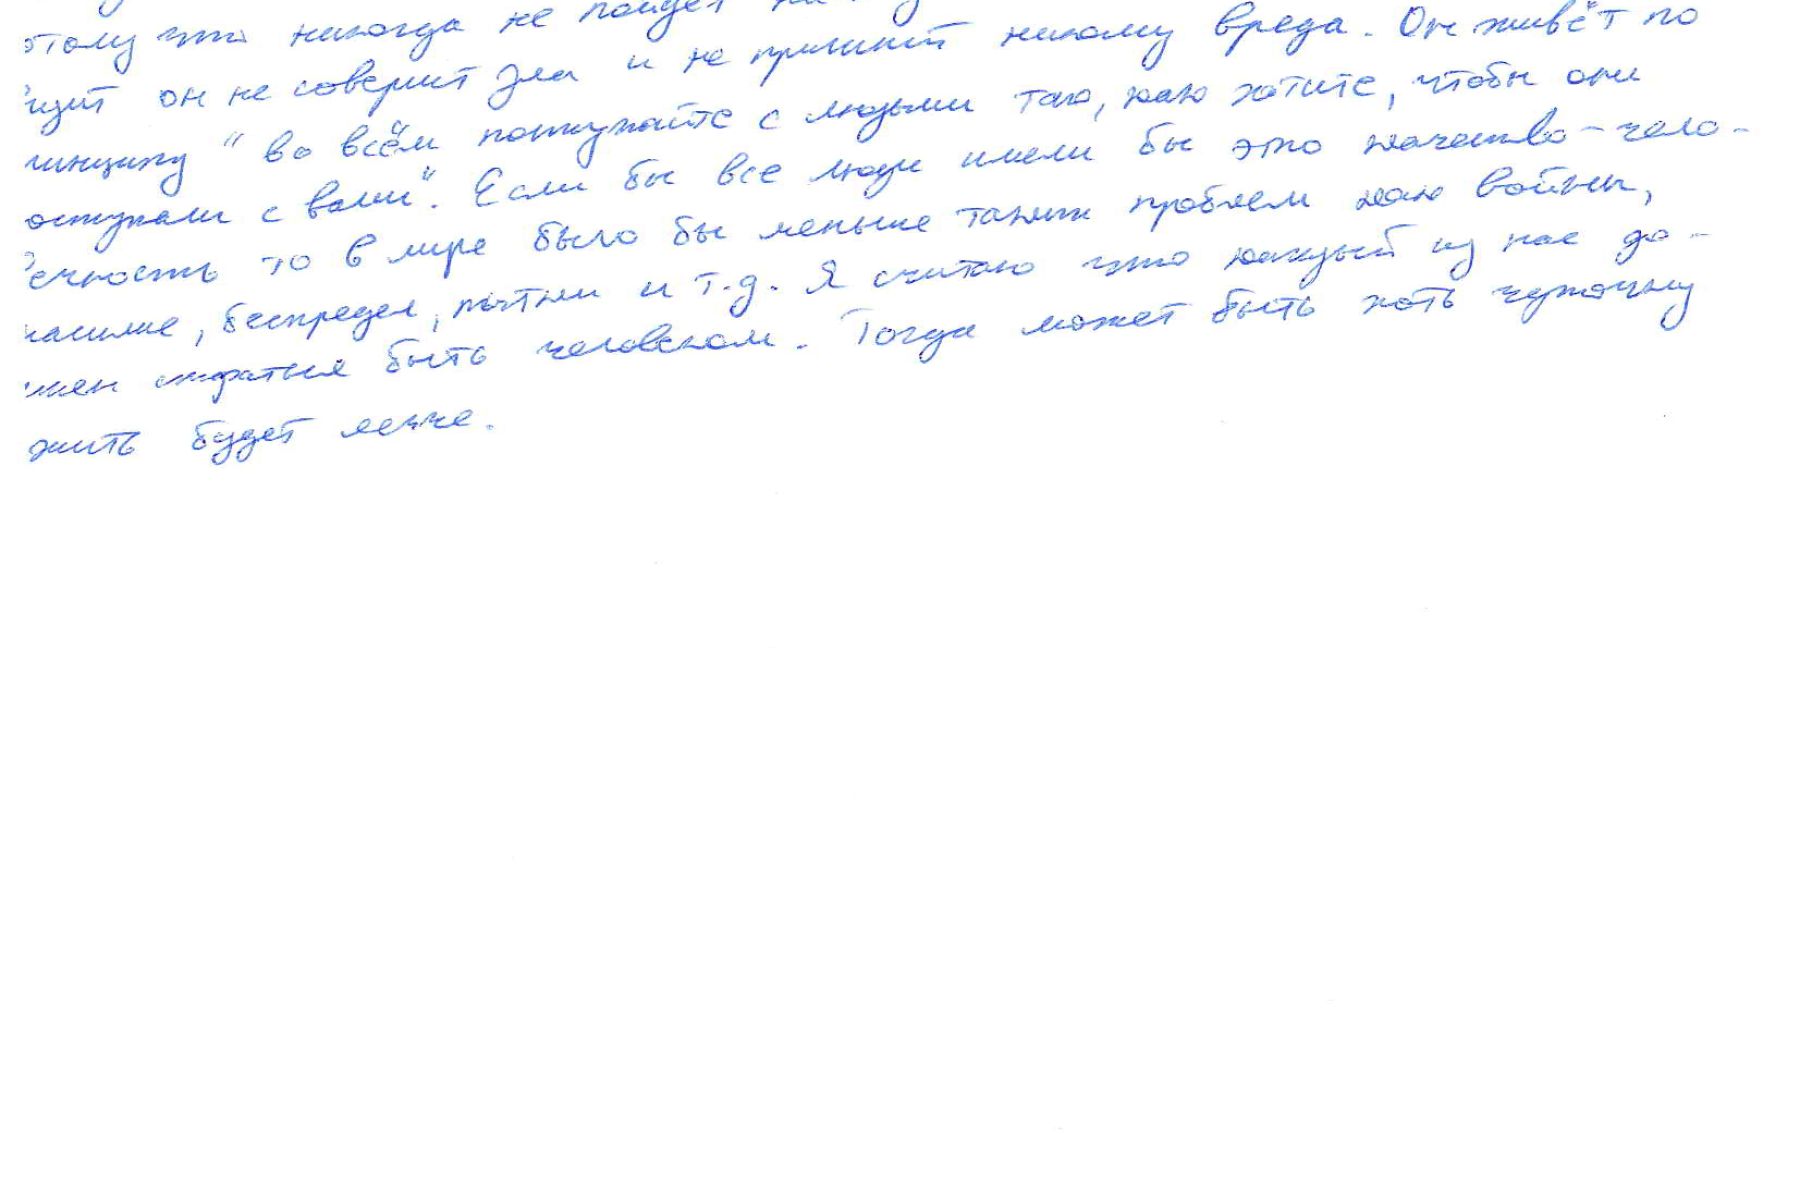 отому что никогда не пойдет на
он не совершит зла и не причинит никому вреда. Он живёт по
инципу "во всём поступайте с людьми так, как хотите, чтобы они
оступали с вами". Если бы все люди имели бы это качество - чело-
ечность то в мире было бы меньше таких проблем как войны,
насилие, беспредел, пытки и т.д. Я считаю что каждый из нас до-
жен стараться быть человеком. Тогда может быть хоть чуточку
жить будет легче.